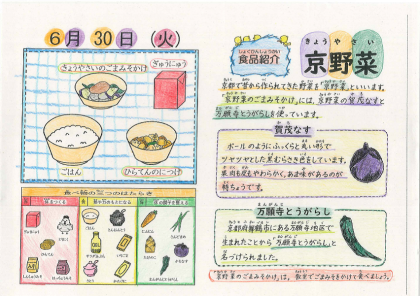 6月 30日 (火)
きょうやさいのごまみそかけ
ぎゅうにゅう
ごはん
ひらてんのにつけ
食べ物の三つのはたらき
しょくひんしょうかい
食品紹介
きょうやさい
京野菜
京都で昔から作られてきた野菜を"京野菜"といいます。
"京野菜のごまみそかけ"には、京野菜の賀茂なすと
万願寺とうがらしを使っています。
賀茂なす
ボールのようにふっくらと丸い形で
ツヤツヤとした黒むらさき色をしています。
果肉も皮もやわらかく、あま味があるのが
特ちょうです。
万願寺とうがらし
京都府舞鶴市にある万願寺地区で
生まれたことから"万願寺とうがらし"と
名づけられました。
"京野菜のごまみそかけ"は、教室でごまみそをかけて食べましょう。